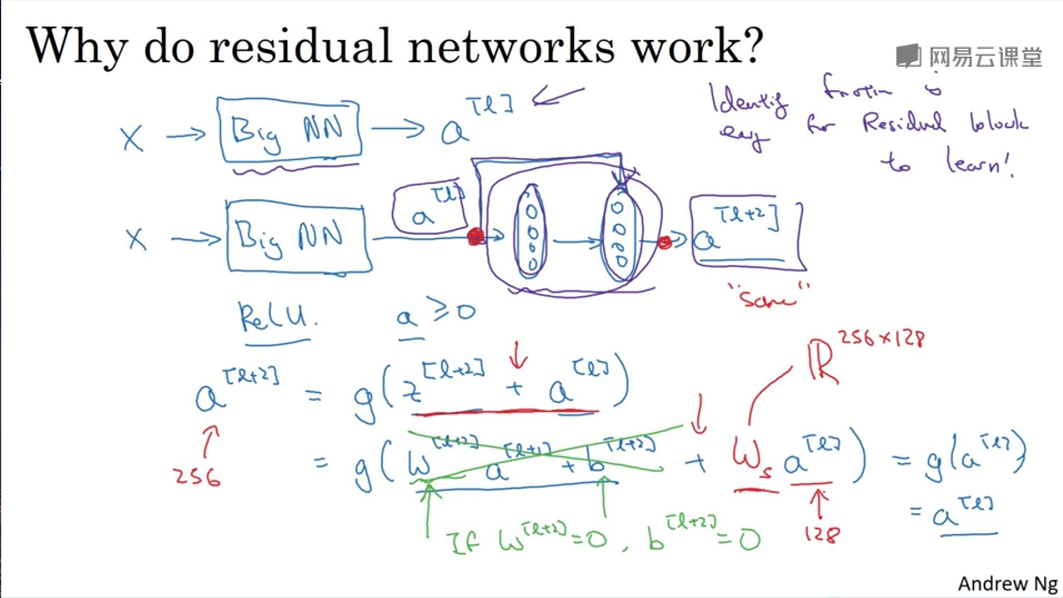 Why do residual networks work?
网易云课堂
X → Big NN → a^[l]
Identity function is
easy for Residual block
to learn!
X → Big NN a^[l] → a^[l+2]
"same"
ReLU. a ≥ 0
ℝ^256×128
a^[l+2] = g(z^[l+2] + a^[l])
256
= g(W^[l+2] a^[l+1] + b^[l+2] + W_s a^[l]) = g(a^[l])
= a^[l]
If W^[l+2] = 0, b^[l+2] = 0
128
Andrew Ng